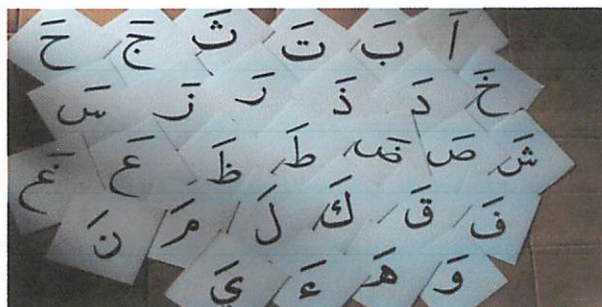 اَ بَ تَ ثَ جَ حَ
خَ دَ ذَ رَ زَ سَ
شَ صَ ضَ طَ ظَ عَ غَ
فَ قَ كَ لَ مَ نَ
وَ هَ ءَ يَ